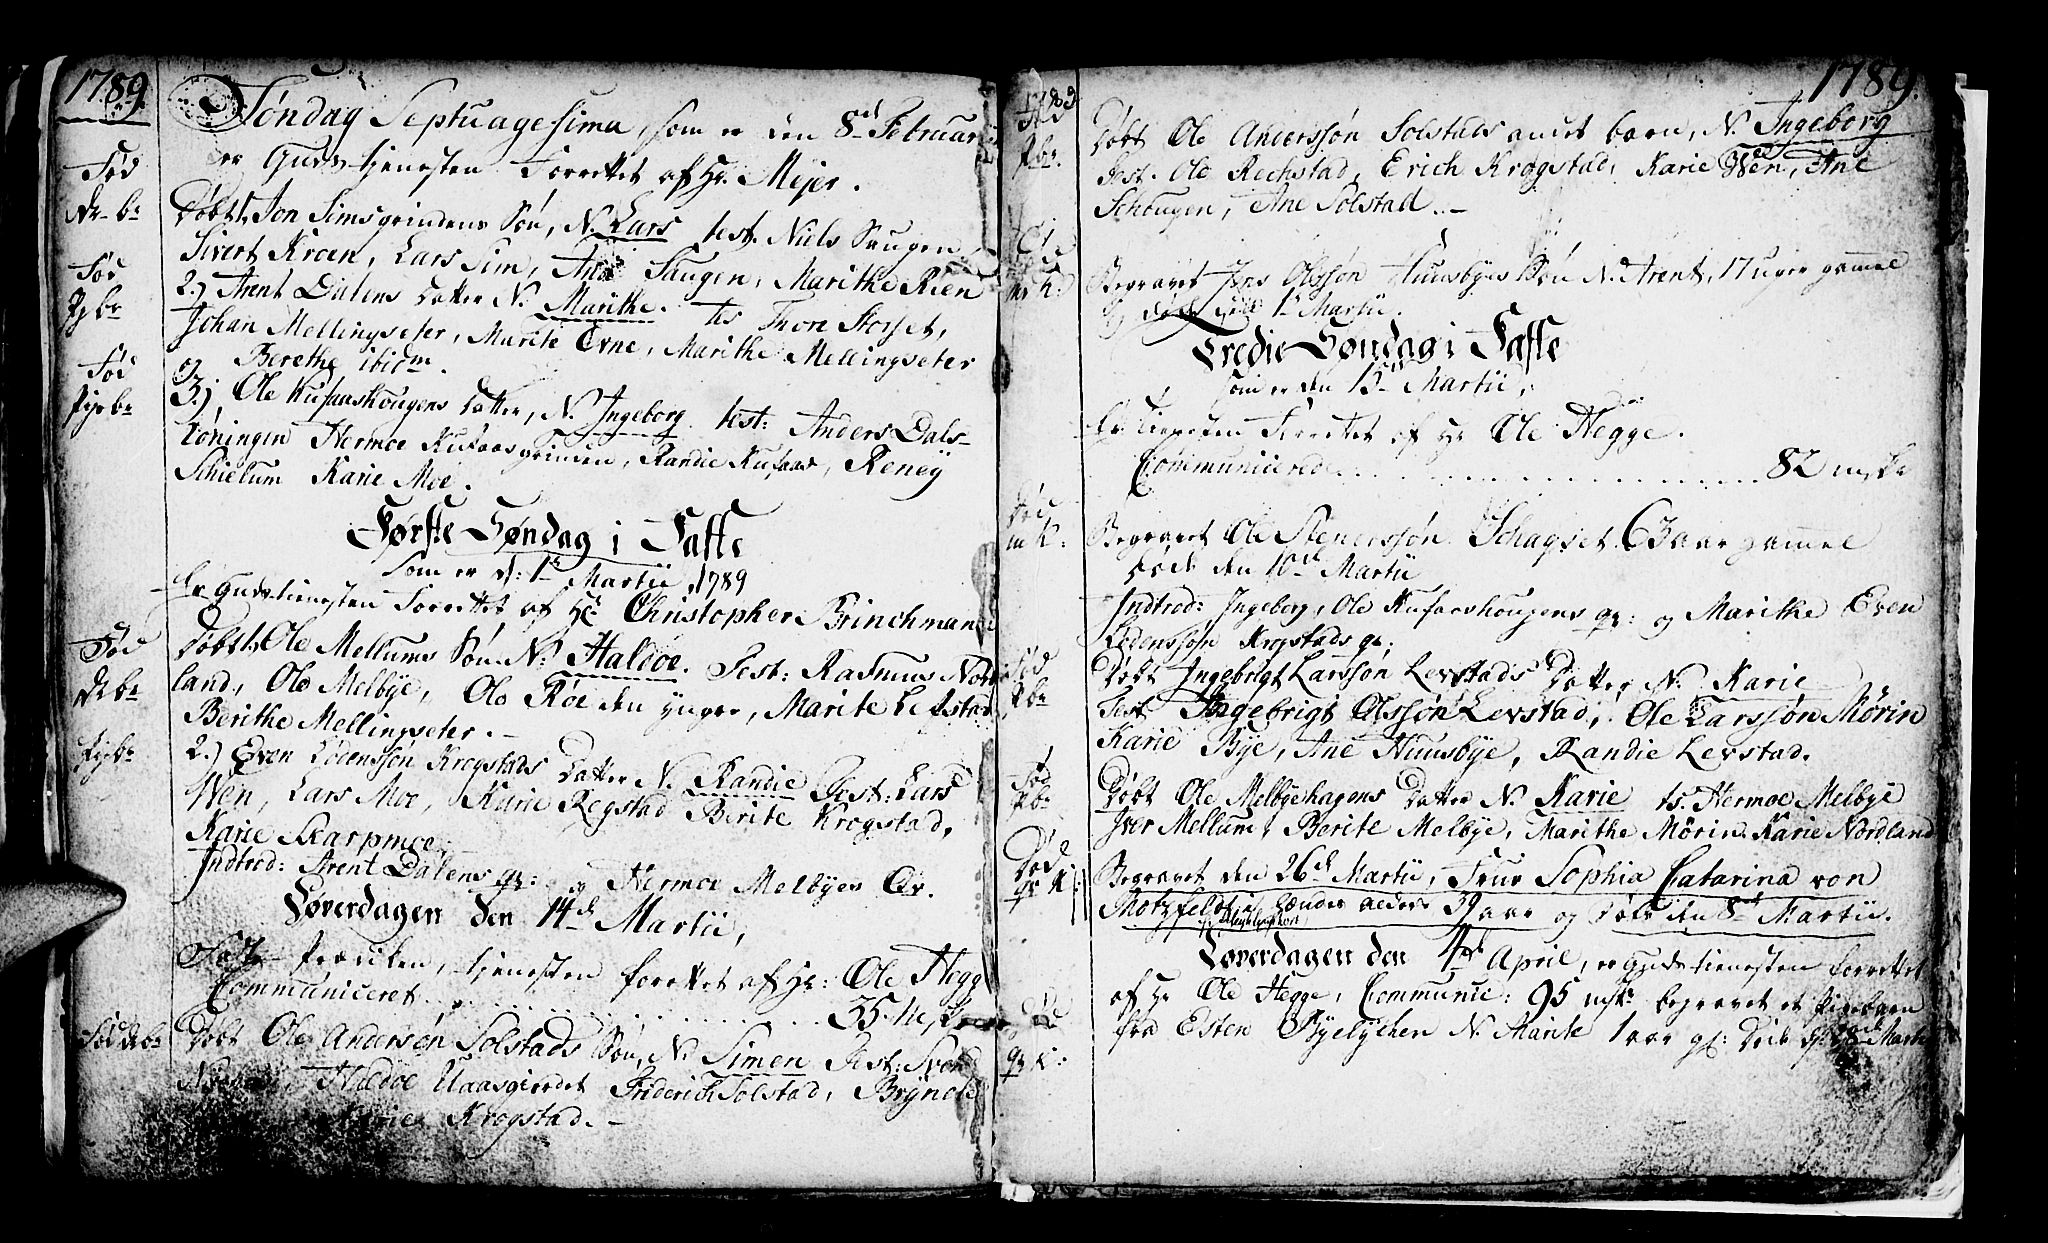 1789
Søndag Septuagesima, som er den 8de Februarii
er Guds tjenesten Forrettet af Hr. Mejer.
Fød
Dr: br
Døbt 1. Jon Simsgrindens Søn, N. Lars test. Niels Saugen
Sivert Kroen, Lars Sim, Ane Saugen, Marithe Rien
Fød
Pg br
2.) Arent Dalens Datter N. Marithe. tes Thore Storset,
Johan Mellingseter, Marite Evne, Marithe Mellingseter
og Berethe ibidm.
Fød
Pige br
3.) Ole Kufaashougens Datter, N. Ingeborg. test: Anders Dals-
løningen Hermoe Kufaasgrinden, Randie Kufaas, Reney
Schielum Karie Moe.
Første Søndag i Faste
Som er d: 1te Martii 1789
Er Gudstienesten Forrettet af Hr. Christopher Brinchmand
Fød
Dr br
Døbt 1. Ole Mellums Søn N: Haldoe. Test: Rasmus Nord
land, Ole Melbye, Ole Roe den yngre, Marite Lefstad
Berithe Mellingseter.
Pige br
2.) Even Lodenssøn Krogstads Datter N. Randie Test: Lars
Wen, Lars Moe, Karie Regstad Berite Krogstad,
Karie Skarpmoe
Indtrod: Arent Dalens qv: og Hermoe Melbyes Qv.
Løverdagen den 14de Martii,
Faste Prædiken, tjenesten forrettet af Hr: Ole Hegge
Communiceret 35 Mskr
Fød Dr br
Døbt Ole Anderssøn Solstads Søn, N. Simen Test: Svend
Haldoe Aasgierdet Friderich Solstad, Brynild
Karie Krogstad.
1789
1789.
Fød
Pg br.
Døbt Ole Anderssøn Solstads andet barn, N. Ingeborg
Test. Ole Rechstad, Erich Krogstad, Karie Wen, Ane
Schougen, Ane Solstad.
Død
m K:
Begravet Jens Olssøn Huusbyes Søn N. Arent, 17 uger gamel
døde den 1te Martii.
Tredie Søndag i Faste
som er den 15de Martii,
Er Tienesten Forrettet af Hr Ole Hegge.
Communicerede 82 mskr
Død
m K:
Begravet Ole Stenerssøn Schagset 63 aar gammel
døde den 10de Martii
Indtrod: Ingeborg, Ole Kufaashougens qv: og Marithe Even
Lodenssøn Krogstads qv:
Fød
Pg br
Døbt Ingebrigt Larssøn Levstads Datter N. Karie
Test Ingebrigt Olssøn Levstad, Ole Larssøn Mørin
Karie Bye, Ane Huusbye, Randie Levstad.
Fød
Pg br
Døbt Ole Melbyehagens Datter N. Karie ts. Hermoe Melbye
Iver Mellum, Berite Melbye, Marithe Mørin Karie Nordland
Død
qv K:
Begravet den 26de Martii, Frue Sophia Catarina von
Motzfeldt, hendes alder 39 aar og døde den 8de Martii.
Løverdagen den 4de April, er Gudstienesten forrettet
af Hr Ole Hegge, Communic: 95 mskr begravet et Pigebarn
Død
qv K:
fra Esten Byelychen N. Marite 1 aar gl: Døde Martii